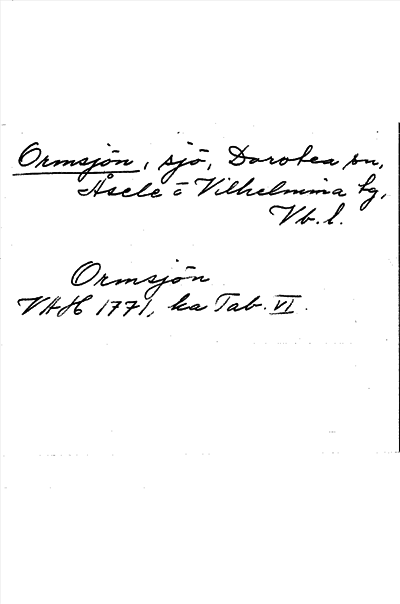 Ormsjön, sjö, Dorotea sn,
Åsele o Vilhelmina tg,
Vb. l.
Ormsjön
VAH 1771, ka Tab. VI.